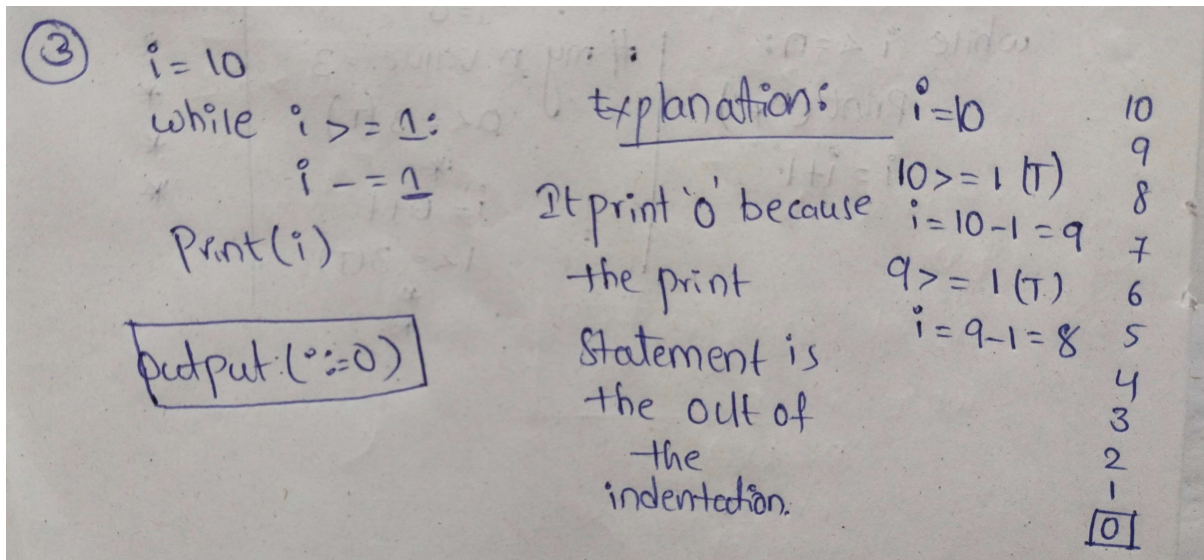 ③
i = 10
while i >= 1:
i -= 1
Print(i)
output:(i:=0)
Explanation:
It print 'o' because
the print
Statement is
the oult of
the
indentection.
i=10
10>= 1 (T)
i = 10-1 = 9
9>= 1 (T)
i = 9-1 = 8
10
9
8
7
6
5
4
3
2
1
0